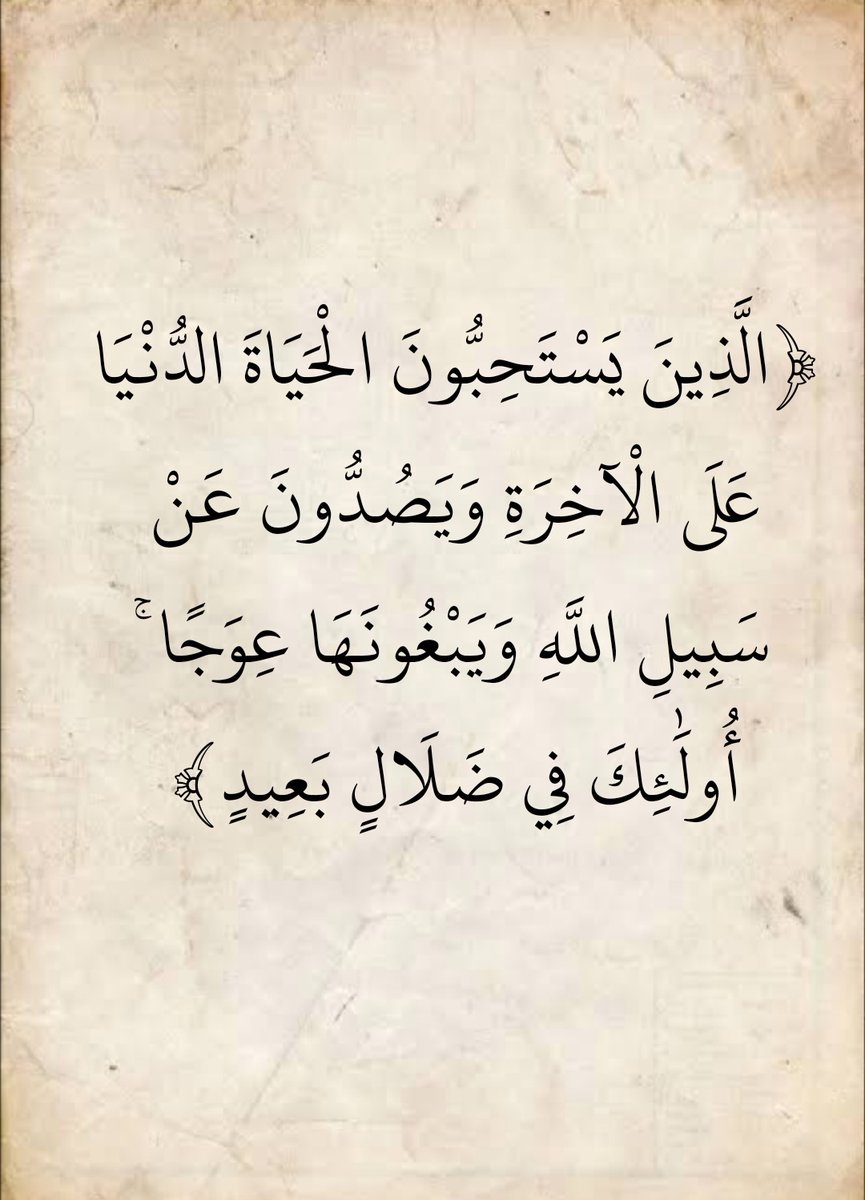 ﴿الَّذِينَ يَسْتَحِبُّونَ الْحَيَاةَ الدُّنْيَا
عَلَى الْآخِرَةِ وَيَصُدُّونَ عَنْ
سَبِيلِ اللَّهِ وَيَبْغُونَهَا عِوَجًا ۚ
أُولَٰئِكَ فِي ضَلَالٍ بَعِيدٍ﴾